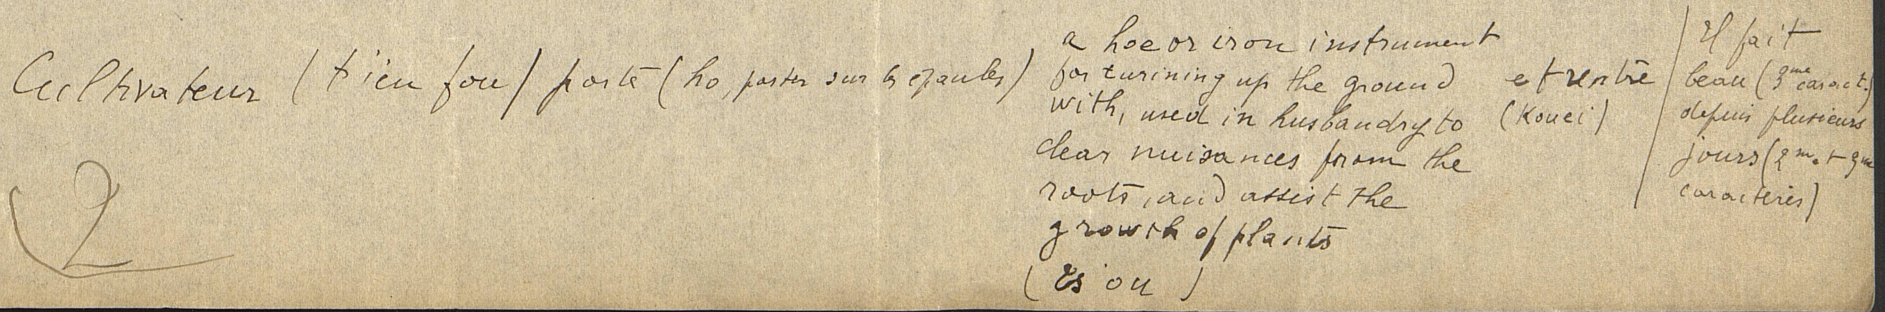 Cultivateur (t'ien fou) porte (ho, porter sur les épaules)
a hoe or iron instrument
for turining up the ground
with, used in husbandry to
clear nuisances from the
roots, and assist the
growth of plants
(ts'ou)
et rentre
(Kouei)
Il fait
beau (3me caract.)
depuis plusieurs
jours (
caractères)
2